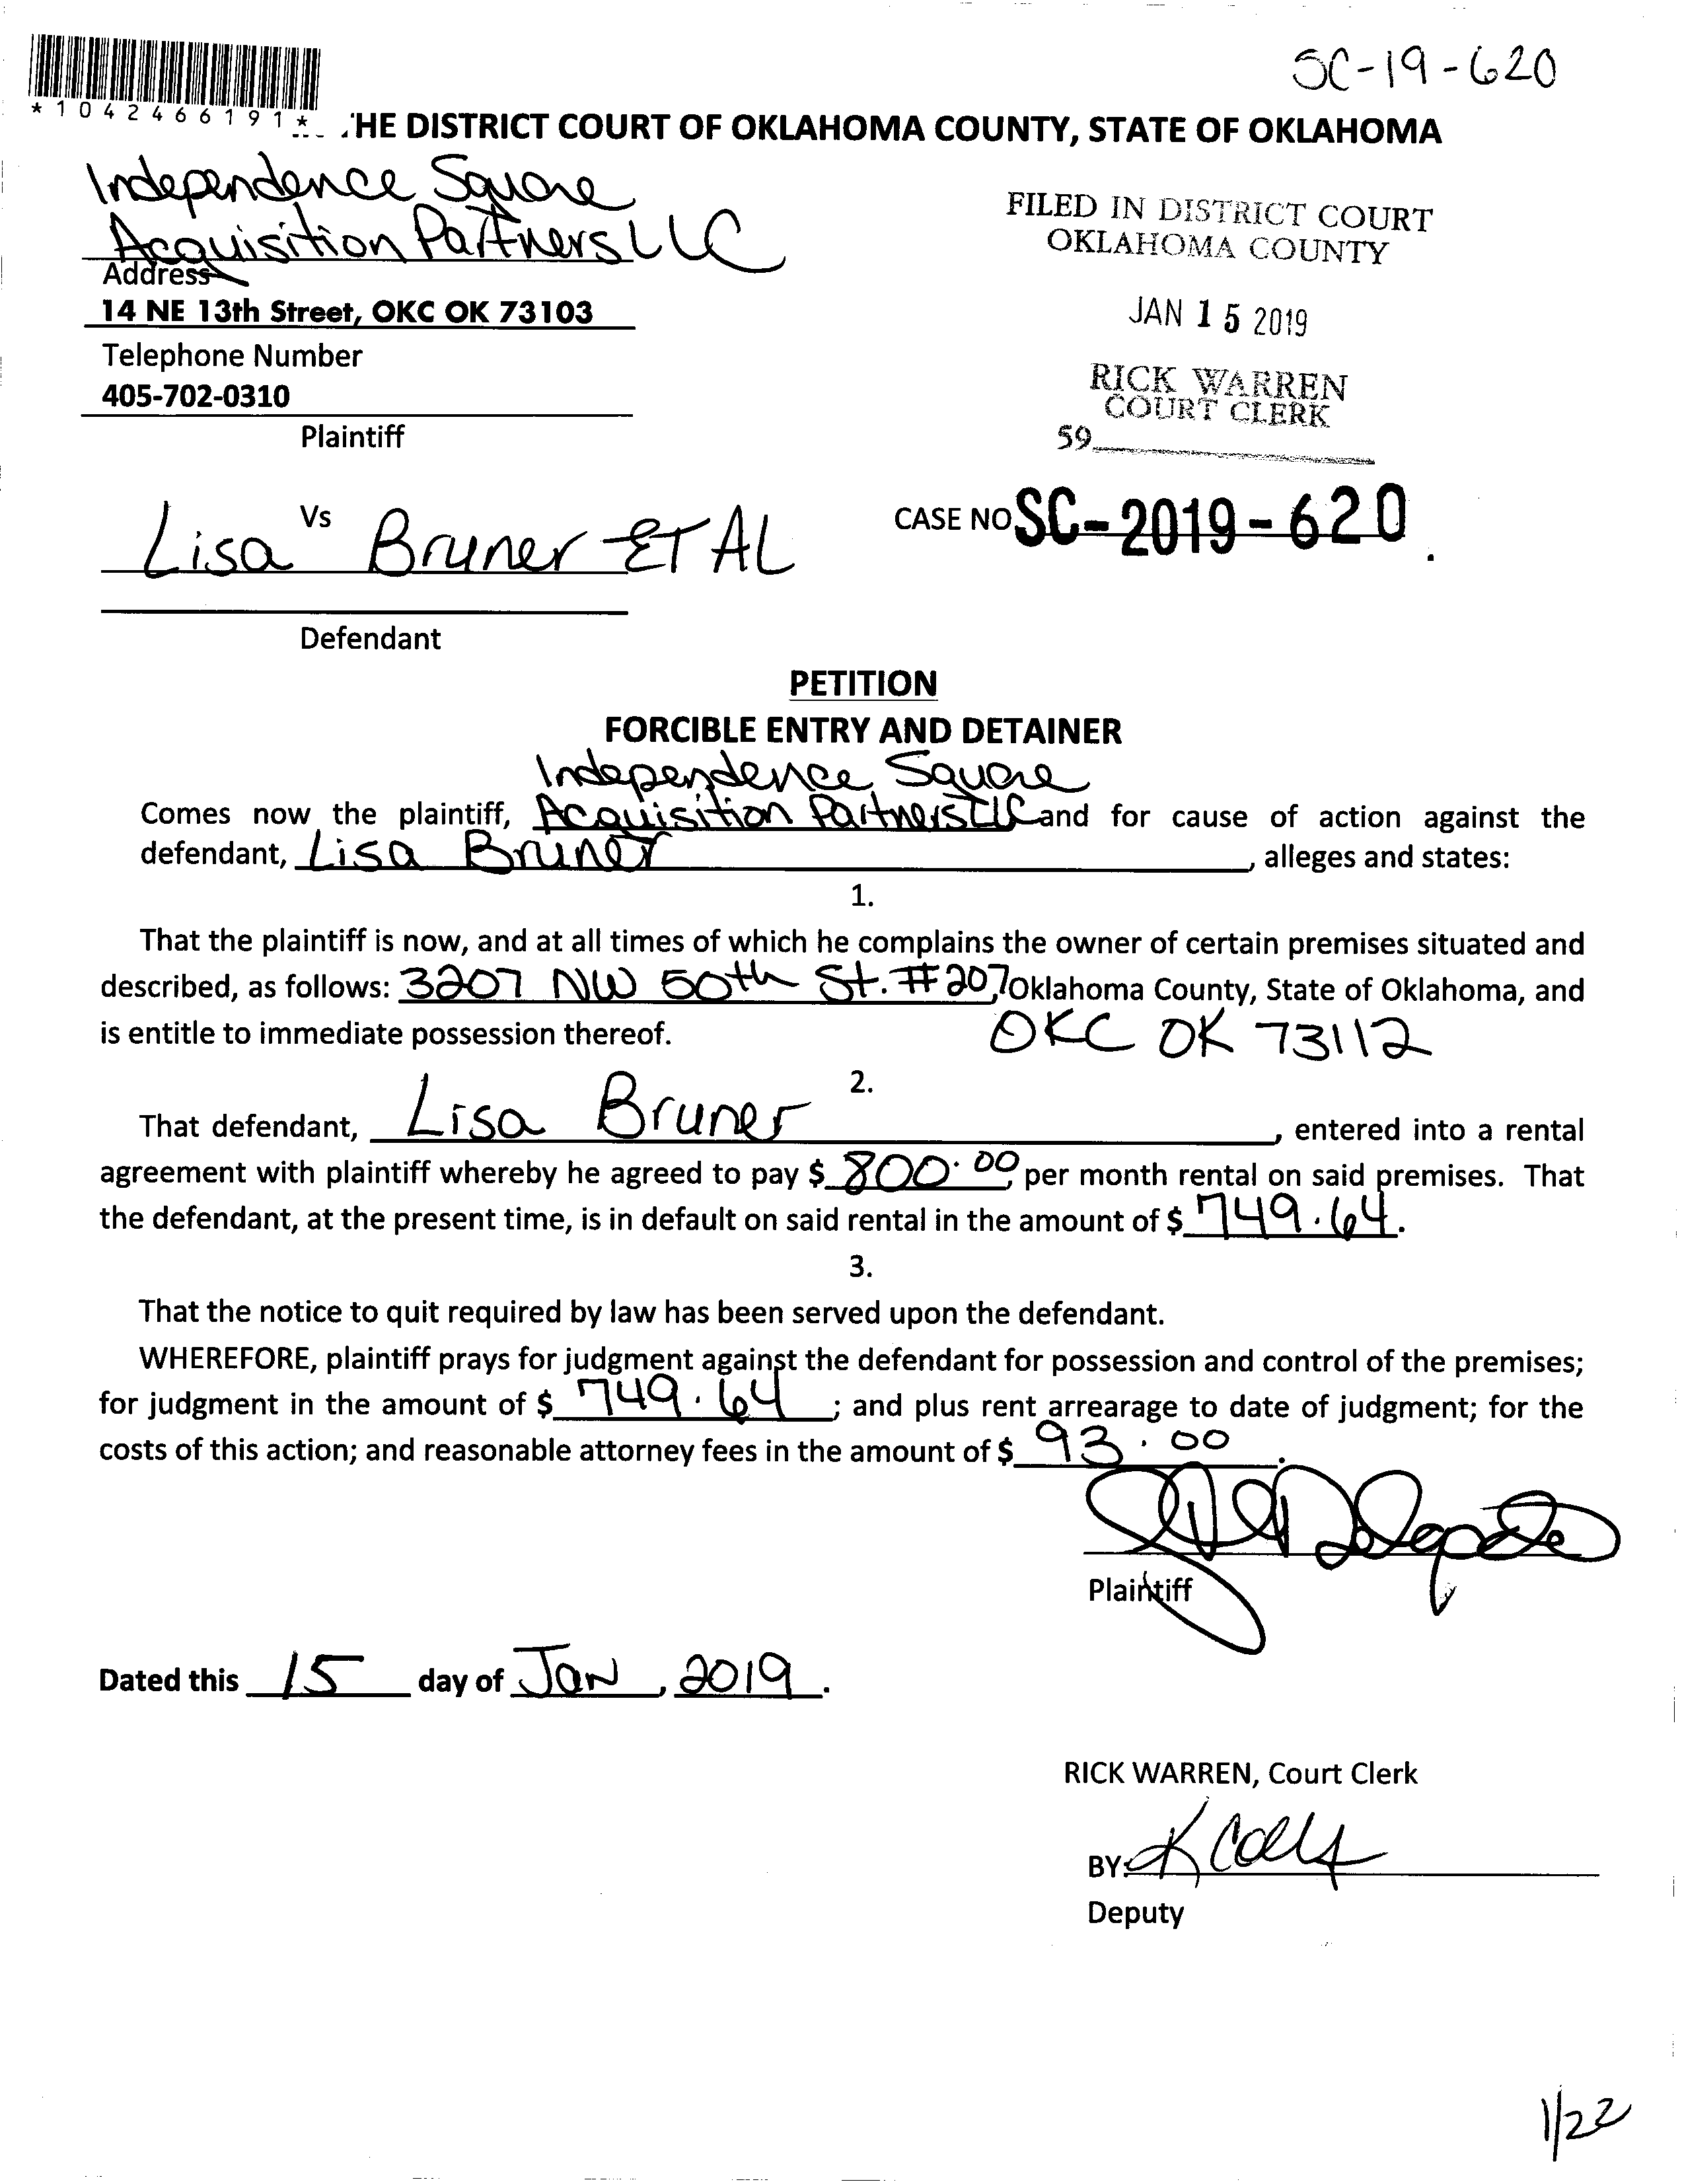 SC-19-620
*1042466191*
THE DISTRICT COURT OF OKLAHOMA COUNTY, STATE OF OKLAHOMA
Independence Square
Acquisition Partners LLC
Address
14 NE 13th Street, OKC OK 73103
Telephone Number
405-702-0310
Plaintiff
FILED IN DISTRICT COURT
OKLAHOMA COUNTY
JAN 15 2019
RICK WARREN
COURT CLERK
59
Vs
Lisa Bruner ET AL
CASE NO SC-2019-620.
Defendant
PETITION
FORCIBLE ENTRY AND DETAINER
Independence Square
Comes now the plaintiff, Acquisition Partners LLC and for cause of action against the
defendant, Lisa Bruner, alleges and states:
1.
That the plaintiff is now, and at all times of which he complains the owner of certain premises situated and
described, as follows: 3207 NW 50th St. #207, Oklahoma County, State of Oklahoma, and
is entitle to immediate possession thereof. OKC OK 73112
2.
That defendant, Lisa Bruner, entered into a rental
agreement with plaintiff whereby he agreed to pay $ 800.00, per month rental on said premises. That
the defendant, at the present time, is in default on said rental in the amount of $ 749.64.
3.
That the notice to quit required by law has been served upon the defendant.
WHEREFORE, plaintiff prays for judgment against the defendant for possession and control of the premises;
for judgment in the amount of $ 749.64; and plus rent arrearage to date of judgment; for the
costs of this action; and reasonable attorney fees in the amount of $ 93.00.
Plaintiff
Dated this 15 day of Jan, 2019.
RICK WARREN, Court Clerk
BY:
Deputy
1/22